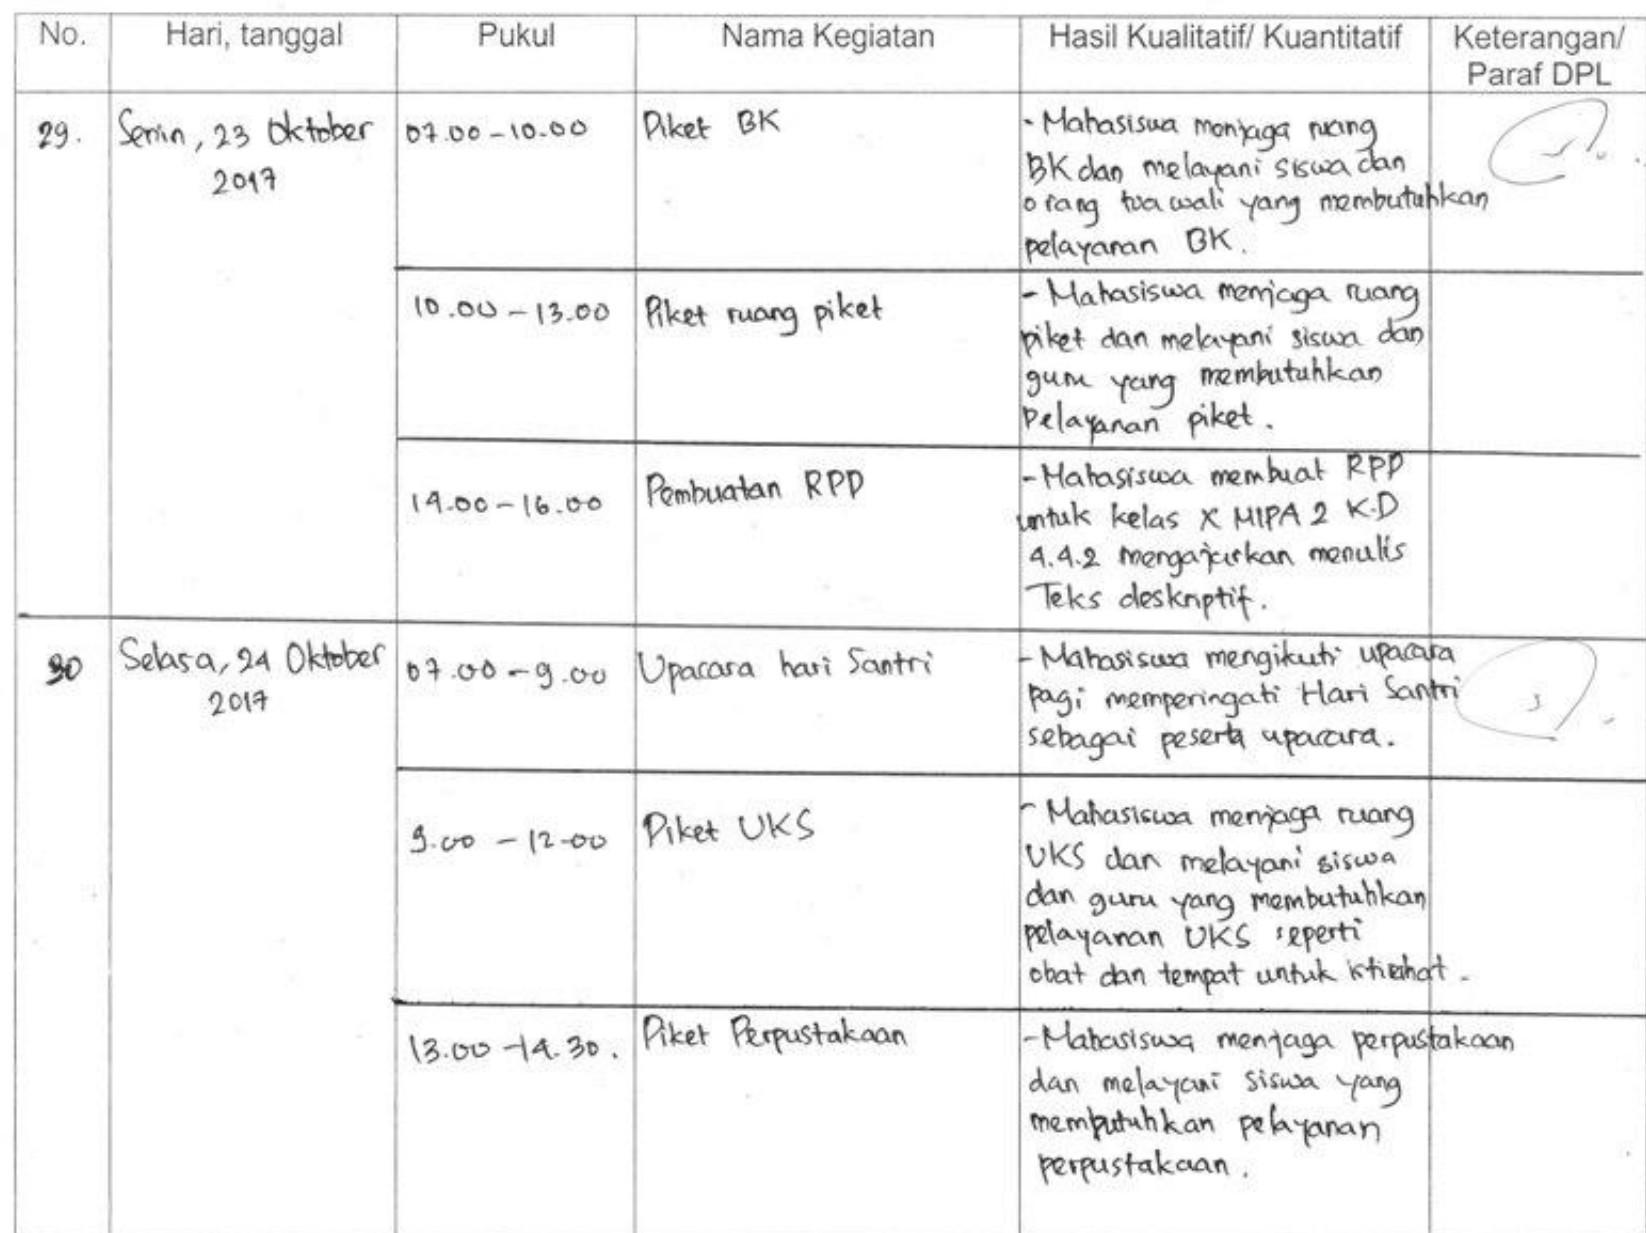 No. Hari, tanggal Pukul Nama Kegiatan Hasil Kualitatif/ Kuantitatif Keterangan/
Paraf DPL
29. Senin, 23 Oktober 07.00-10.00 Piket BK - Mahasiswa menjaga ruang
2017 BK dan melayani siswa dan
orang tua wali yang membutuhkan
pelayanan BK.
10.00-13.00 Piket ruang piket - Mahasiswa menjaga ruang
piket dan melayani siswa dan
guru yang membutuhkan
Pelayanan piket.
14.00-16.00 Pembuatan RPP - Mahasiswa membuat RPP
untuk kelas X MIPA 2 K.D
4.4.2 mengajarkan menulis
Teks deskriptif.
30 Selasa, 24 Oktober 07.00-9.00 Upacara hari Santri - Mahasiswa mengikuti upacara
2017 pagi memperingati Hari Santri
sebagai peserta upacara.
9.00-12.00 Piket UKS - Mahasiswa menjaga ruang
UKS dan melayani siswa
dan guru yang membutuhkan
pelayanan UKS seperti
obat dan tempat untuk istirahat.
13.00-14.30. Piket Perpustakaan - Mahasiswa menjaga perpustakaan
dan melayani siswa yang
membutuhkan pelayanan
perpustakaan.